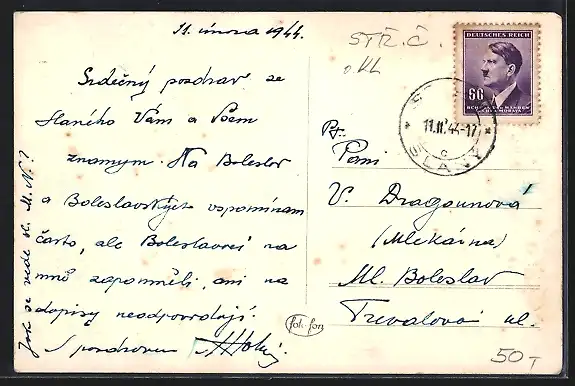 11. února 1944.
Srdečný pozdrav ze
Slaného Vám a Všem
známym. Na Boleslav
a Boleslavských vzpomínám
často, ale Boleslavští na
mně zapomněli, ani na
dopisy neodpovídají.
S pozdravem
Jak se vede sl. M. N.?
STŘ. Č.
DEUTSCHES REICH
60
BÖHMEN UND MÄHREN
ČECHY A MORAVA
11.II.44-17
SLANÝ
c
Pž.
Paní
V. Dragounová
(Mlékárna)
Ml. Boleslav
ul.
fotofon
50